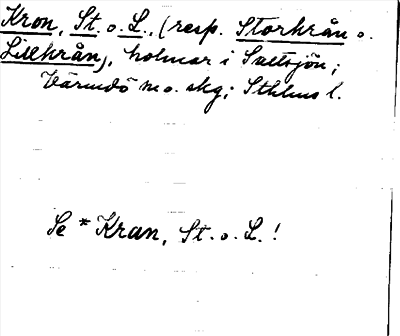 Kron, St. o. L., (resp. Storkrån o.
Lillkrån), holmar i Saltsjön;
Värmdö sn o. skg; Sthlms l.
Se *Kran, St. o. L.!